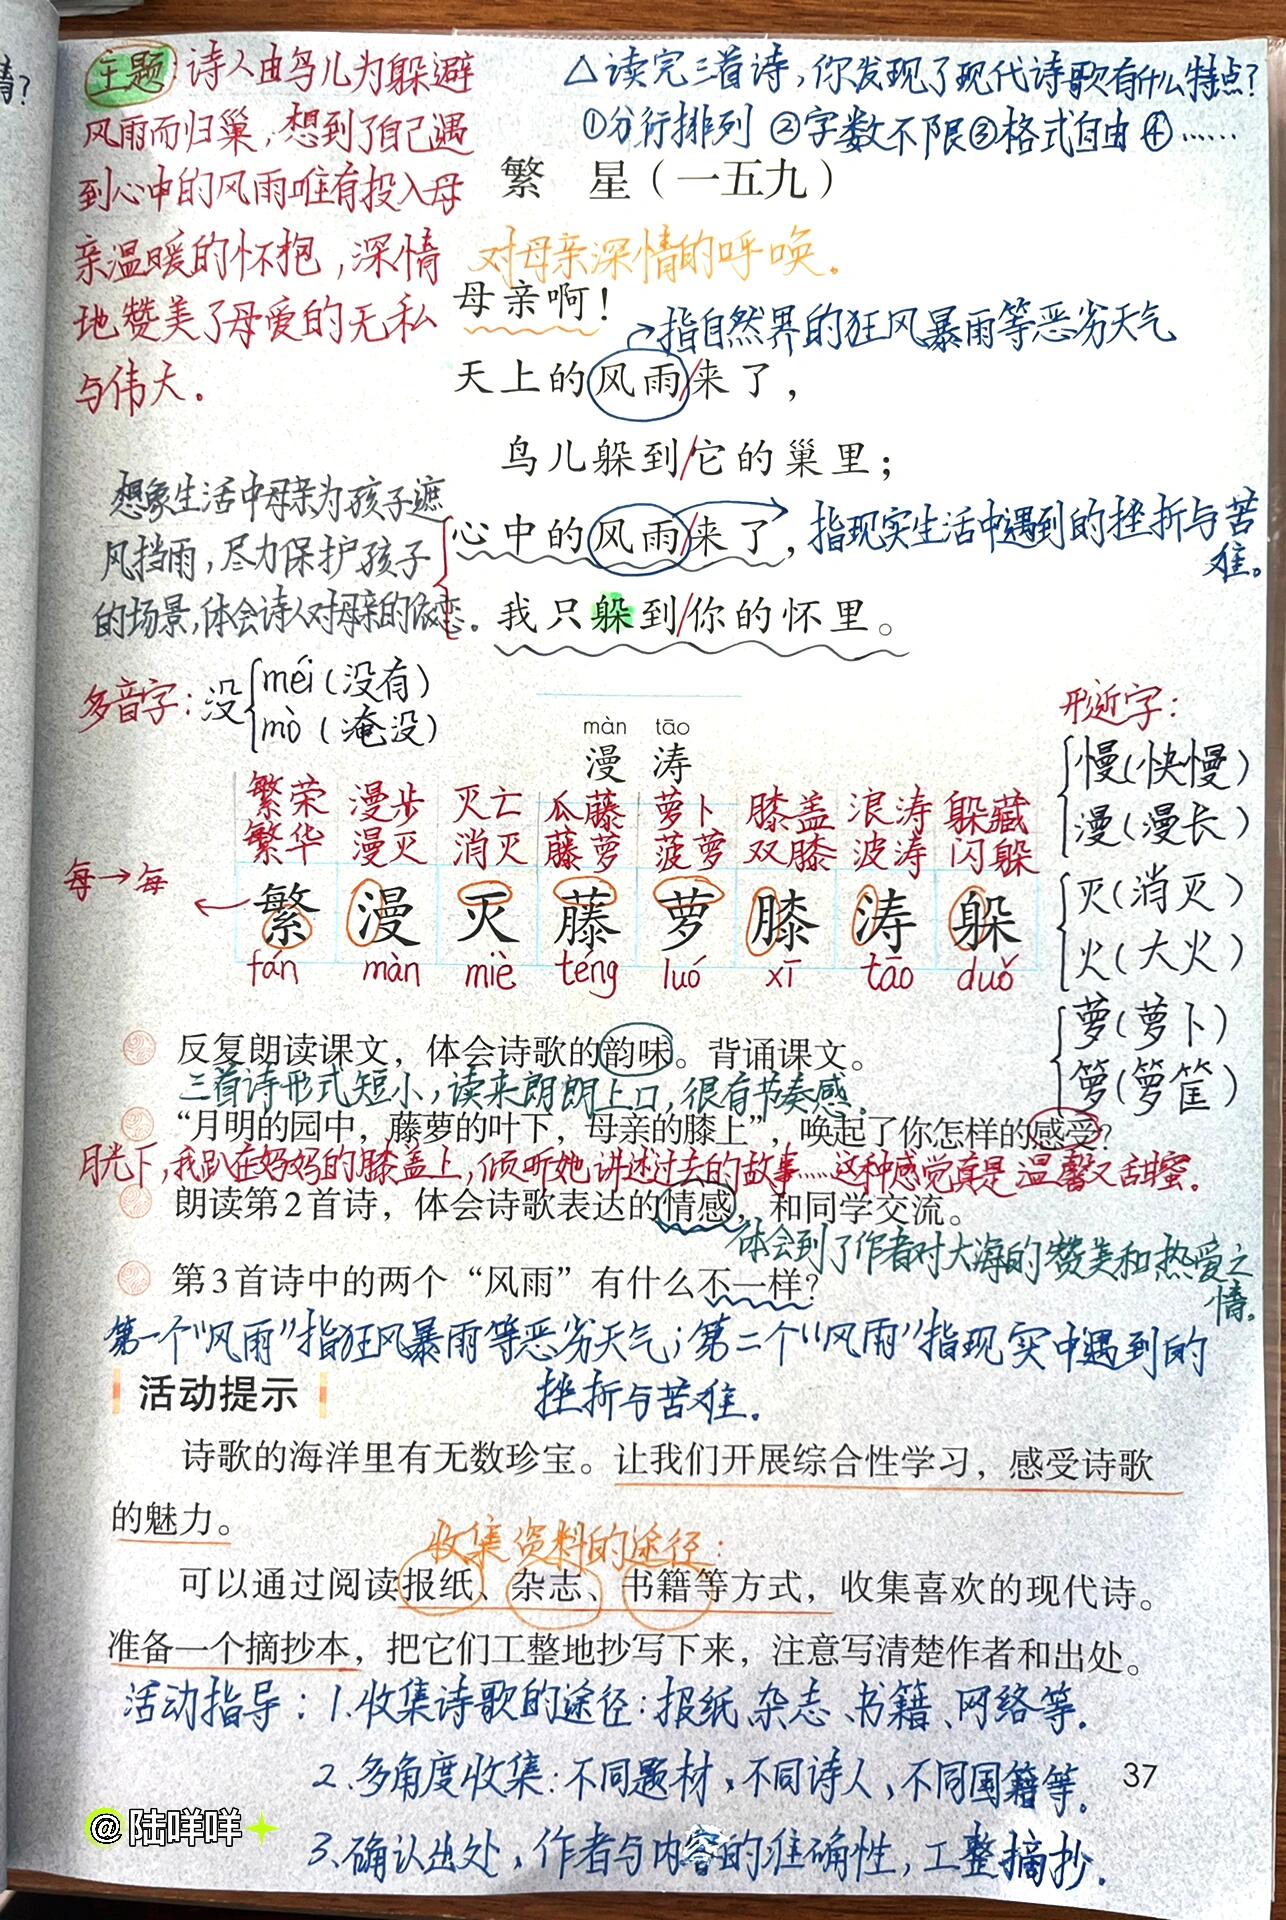 情?
主题 诗人由鸟儿为躲避
风雨而归巢,想到了自己遇
到心中的风雨唯有投入母
亲温暖的怀抱,深情
地赞美了母爱的无私
与伟大.
△读完三首诗,你发现了现代诗歌有什么特点?
①分行排列 ②字数不限③格式自由 ④……
繁 星(一五九)
对母亲深情的呼唤.
母亲啊!
指自然界的狂风暴雨等恶劣天气
天上的风雨/来了,
鸟儿躲到/它的巢里;
心中的风雨/来了,
指现实生活中遇到的挫折与苦
难。
我只躲到/你的怀里。
想象生活中母亲为孩子遮
风挡雨,尽力保护孩子
的场景,体会诗人对母亲的依恋.
多音字:没 méi(没有)
mò(淹没)
màn tāo
漫 涛
繁荣 漫步 灭亡 瓜藤 萝卜 膝盖 浪涛 躲藏
繁华 漫灭 消灭 藤萝 菠萝 双膝 波涛 闪躲
每→每
繁 漫 灭 藤 萝 膝 涛 躲
fán màn miè téng luó xī tāo duǒ
形近字:
慢(快慢)
漫(漫长)
灭(消灭)
火(大火)
萝(萝卜)
箩(箩筐)
反复朗读课文,体会诗歌的韵味。背诵课文。
三首诗形式短小,读来朗朗上口,很有节奏感.
“月明的园中,藤萝的叶下,母亲的膝上”,唤起了你怎样的感受?
月光下,我趴在妈妈的膝盖上,倾听她讲述过去的故事……这种感觉真是温馨又甜蜜.
朗读第2首诗,体会诗歌表达的情感,和同学交流。
体会到了作者对大海的赞美和热爱之
情.
第3首诗中的两个“风雨”有什么不一样?
第一个“风雨”指狂风暴雨等恶劣天气;第二个“风雨”指现实中遇到的
挫折与苦难.
活动提示
诗歌的海洋里有无数珍宝。让我们开展综合性学习,感受诗歌
的魅力。
收集资料的途径:
可以通过阅读报纸、杂志、书籍等方式,收集喜欢的现代诗。
准备一个摘抄本,把它们工整地抄写下来,注意写清楚作者和出处。
活动指导:1.收集诗歌的途径:报纸、杂志、书籍、网络等.
2.多角度收集:不同题材,不同诗人,不同国籍等.
37
3.确认出处,作者与内容的准确性,工整摘抄.
@陆咩咩